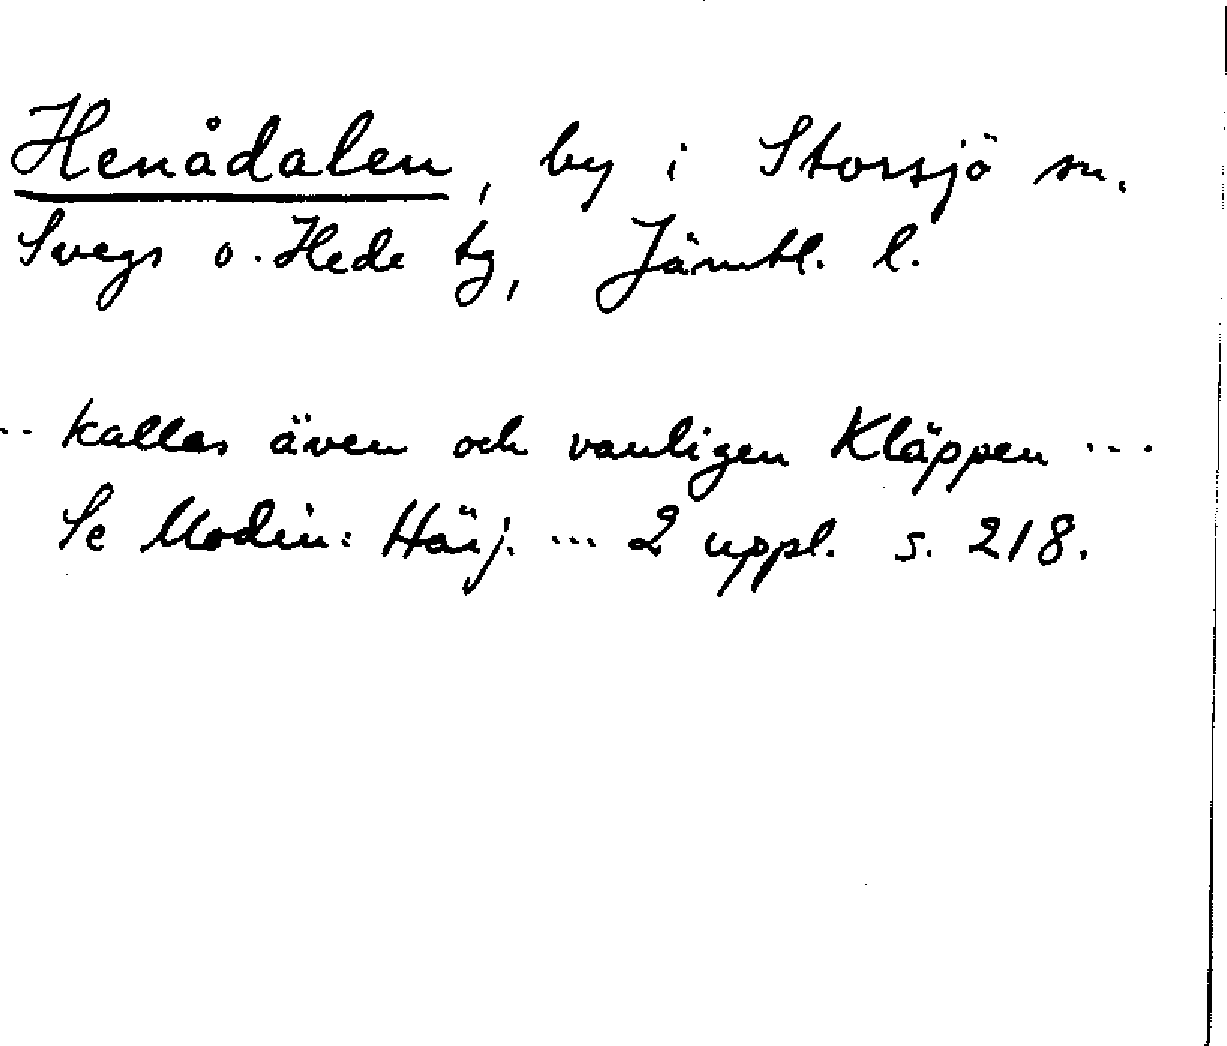 Henådalen, by i Storsjö sn.
Svegs o. Hede tg, Jämtl. l.
... kallas även och vanligen Kläppen ...
Se Modin: Härj. ... 2 uppl. s. 218.